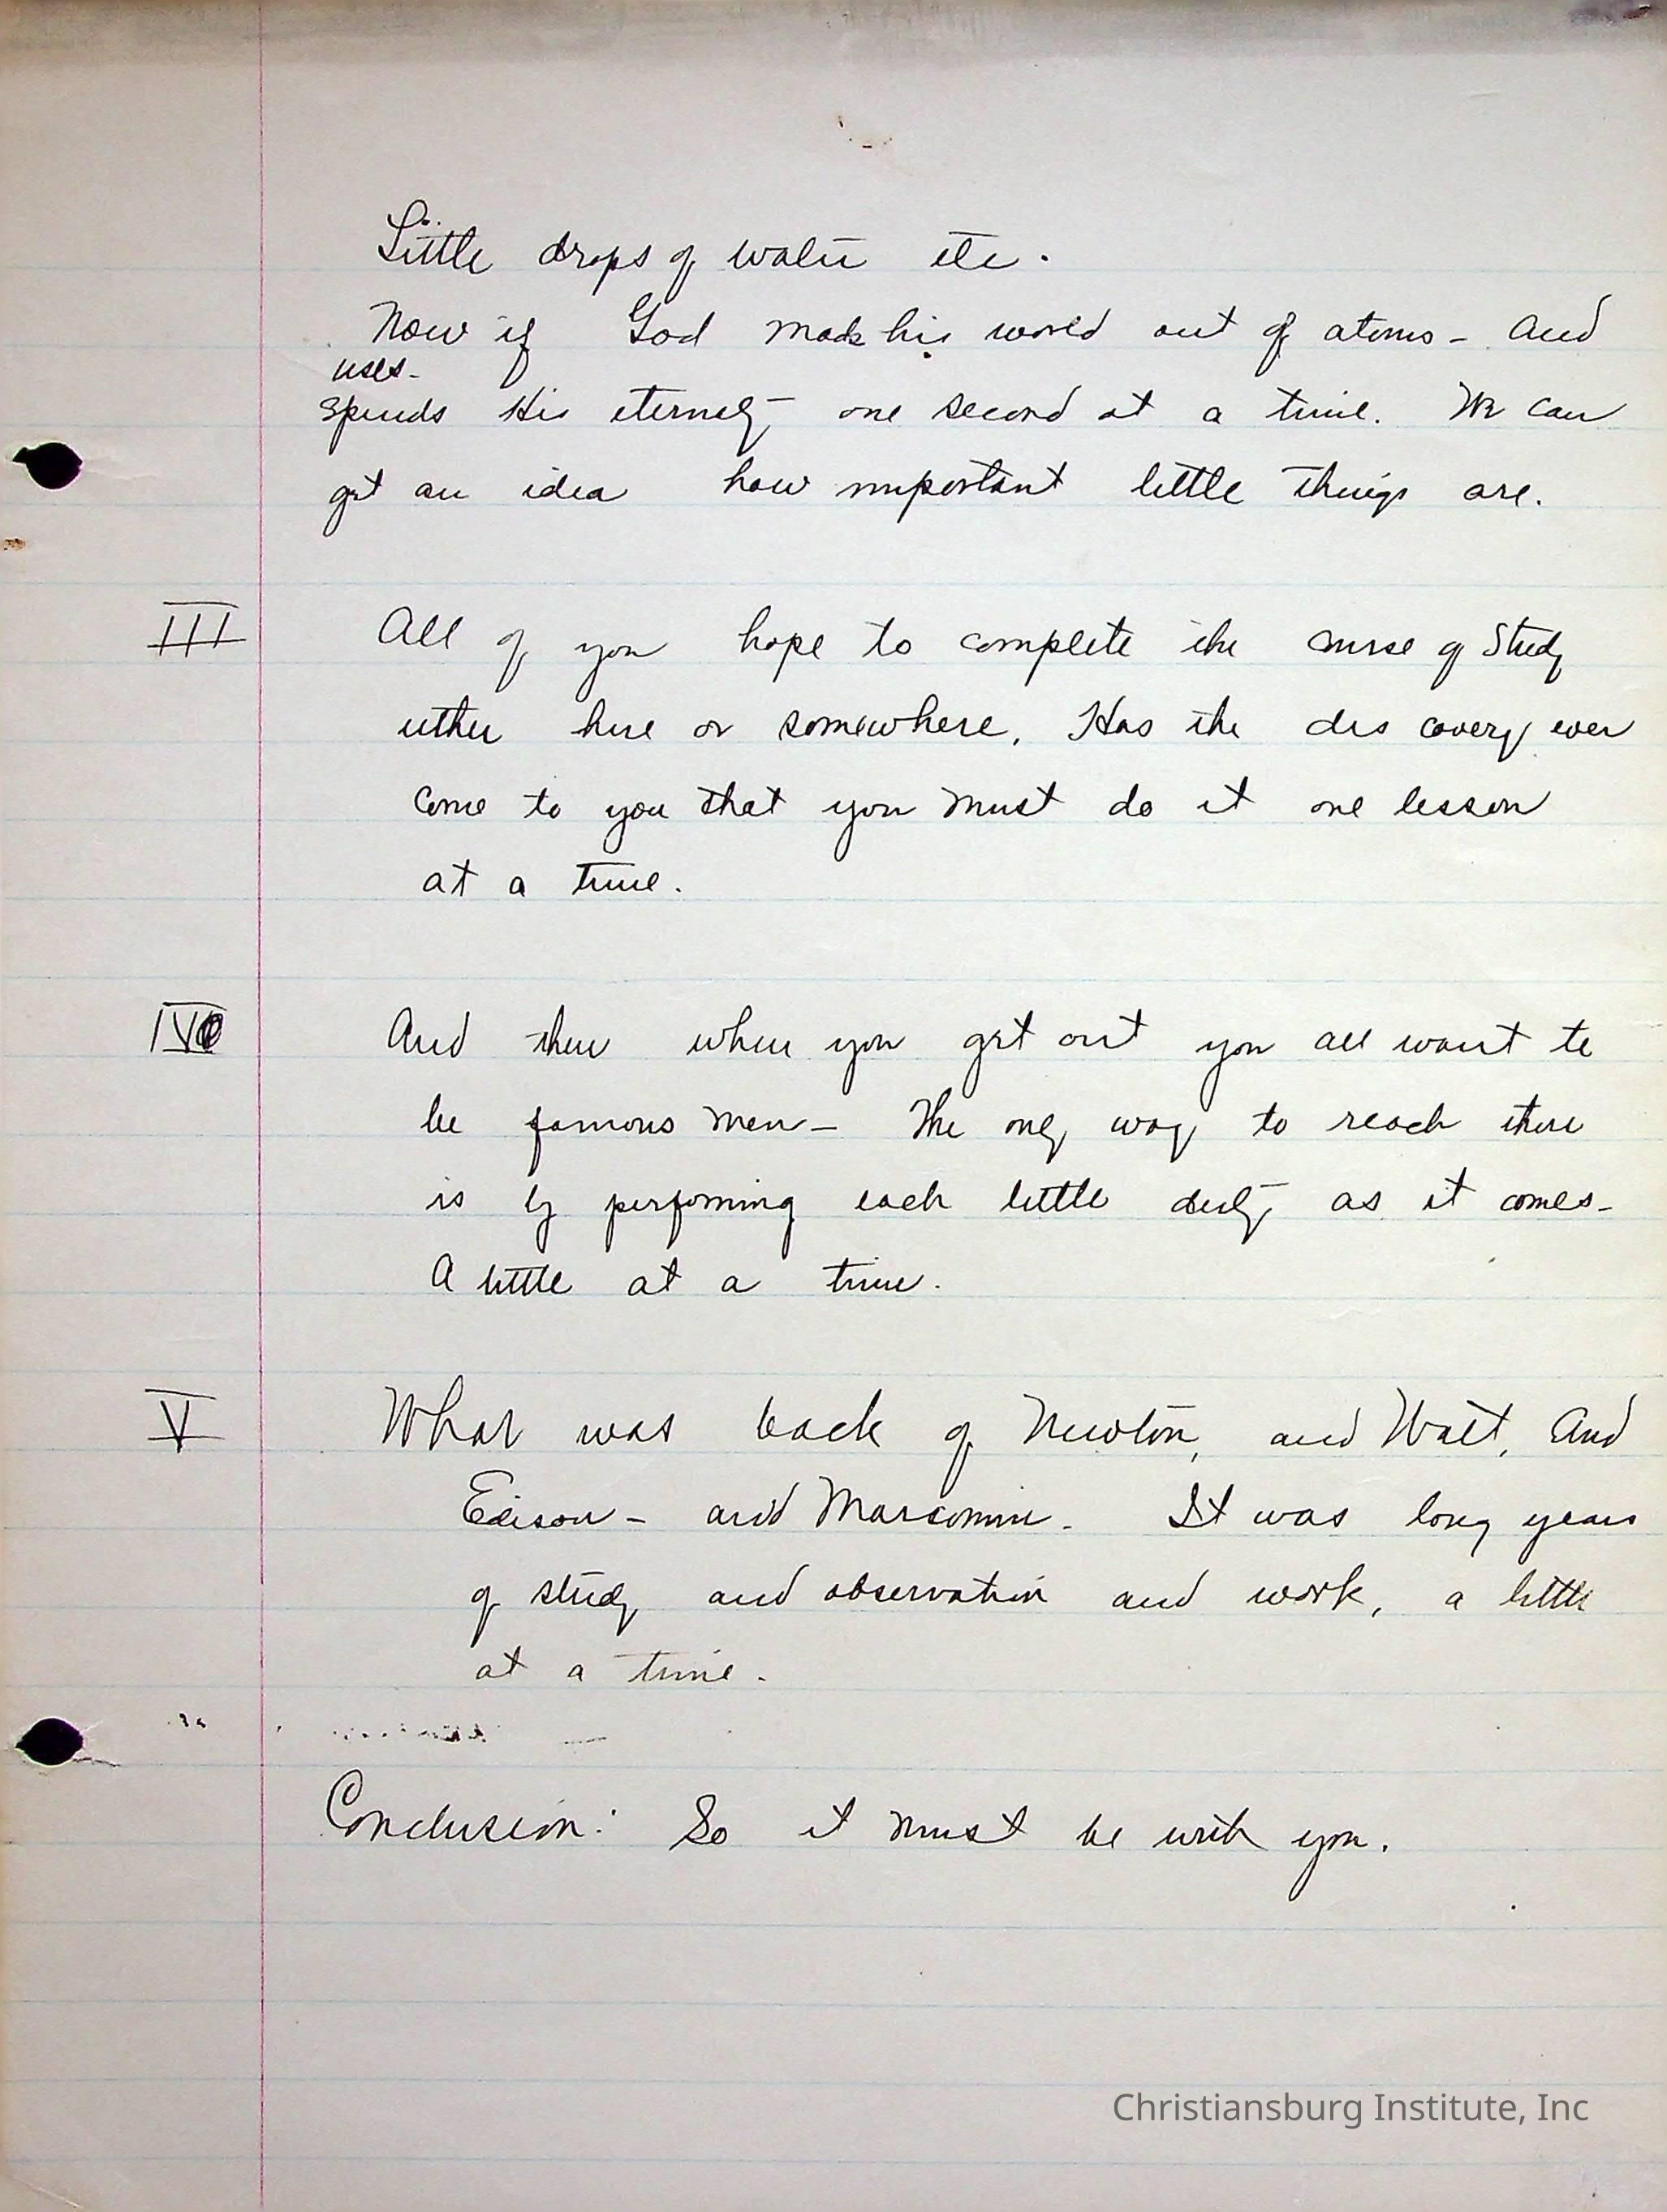 Little drops of water etc.
Now if God made his world out of atoms - and
uses -
spends His eternety one second at a time. We can
get an idea how important little things are.
III All of you hope to complete the course of Study
either here or somewhere. Has the dis covery ever
come to you that you must do it one lesson
at a time.
IV And then when you get out you all want to
be famous men - The only way to reach there
is by performing each little duty as it comes -
A little at a time.
V What was back of Newton, and Watt, And
Edison - and Marconni. It was long years
of study and observation and work, a little
at a time.
Conclusion: So it must be with you.
Christiansburg Institute, Inc